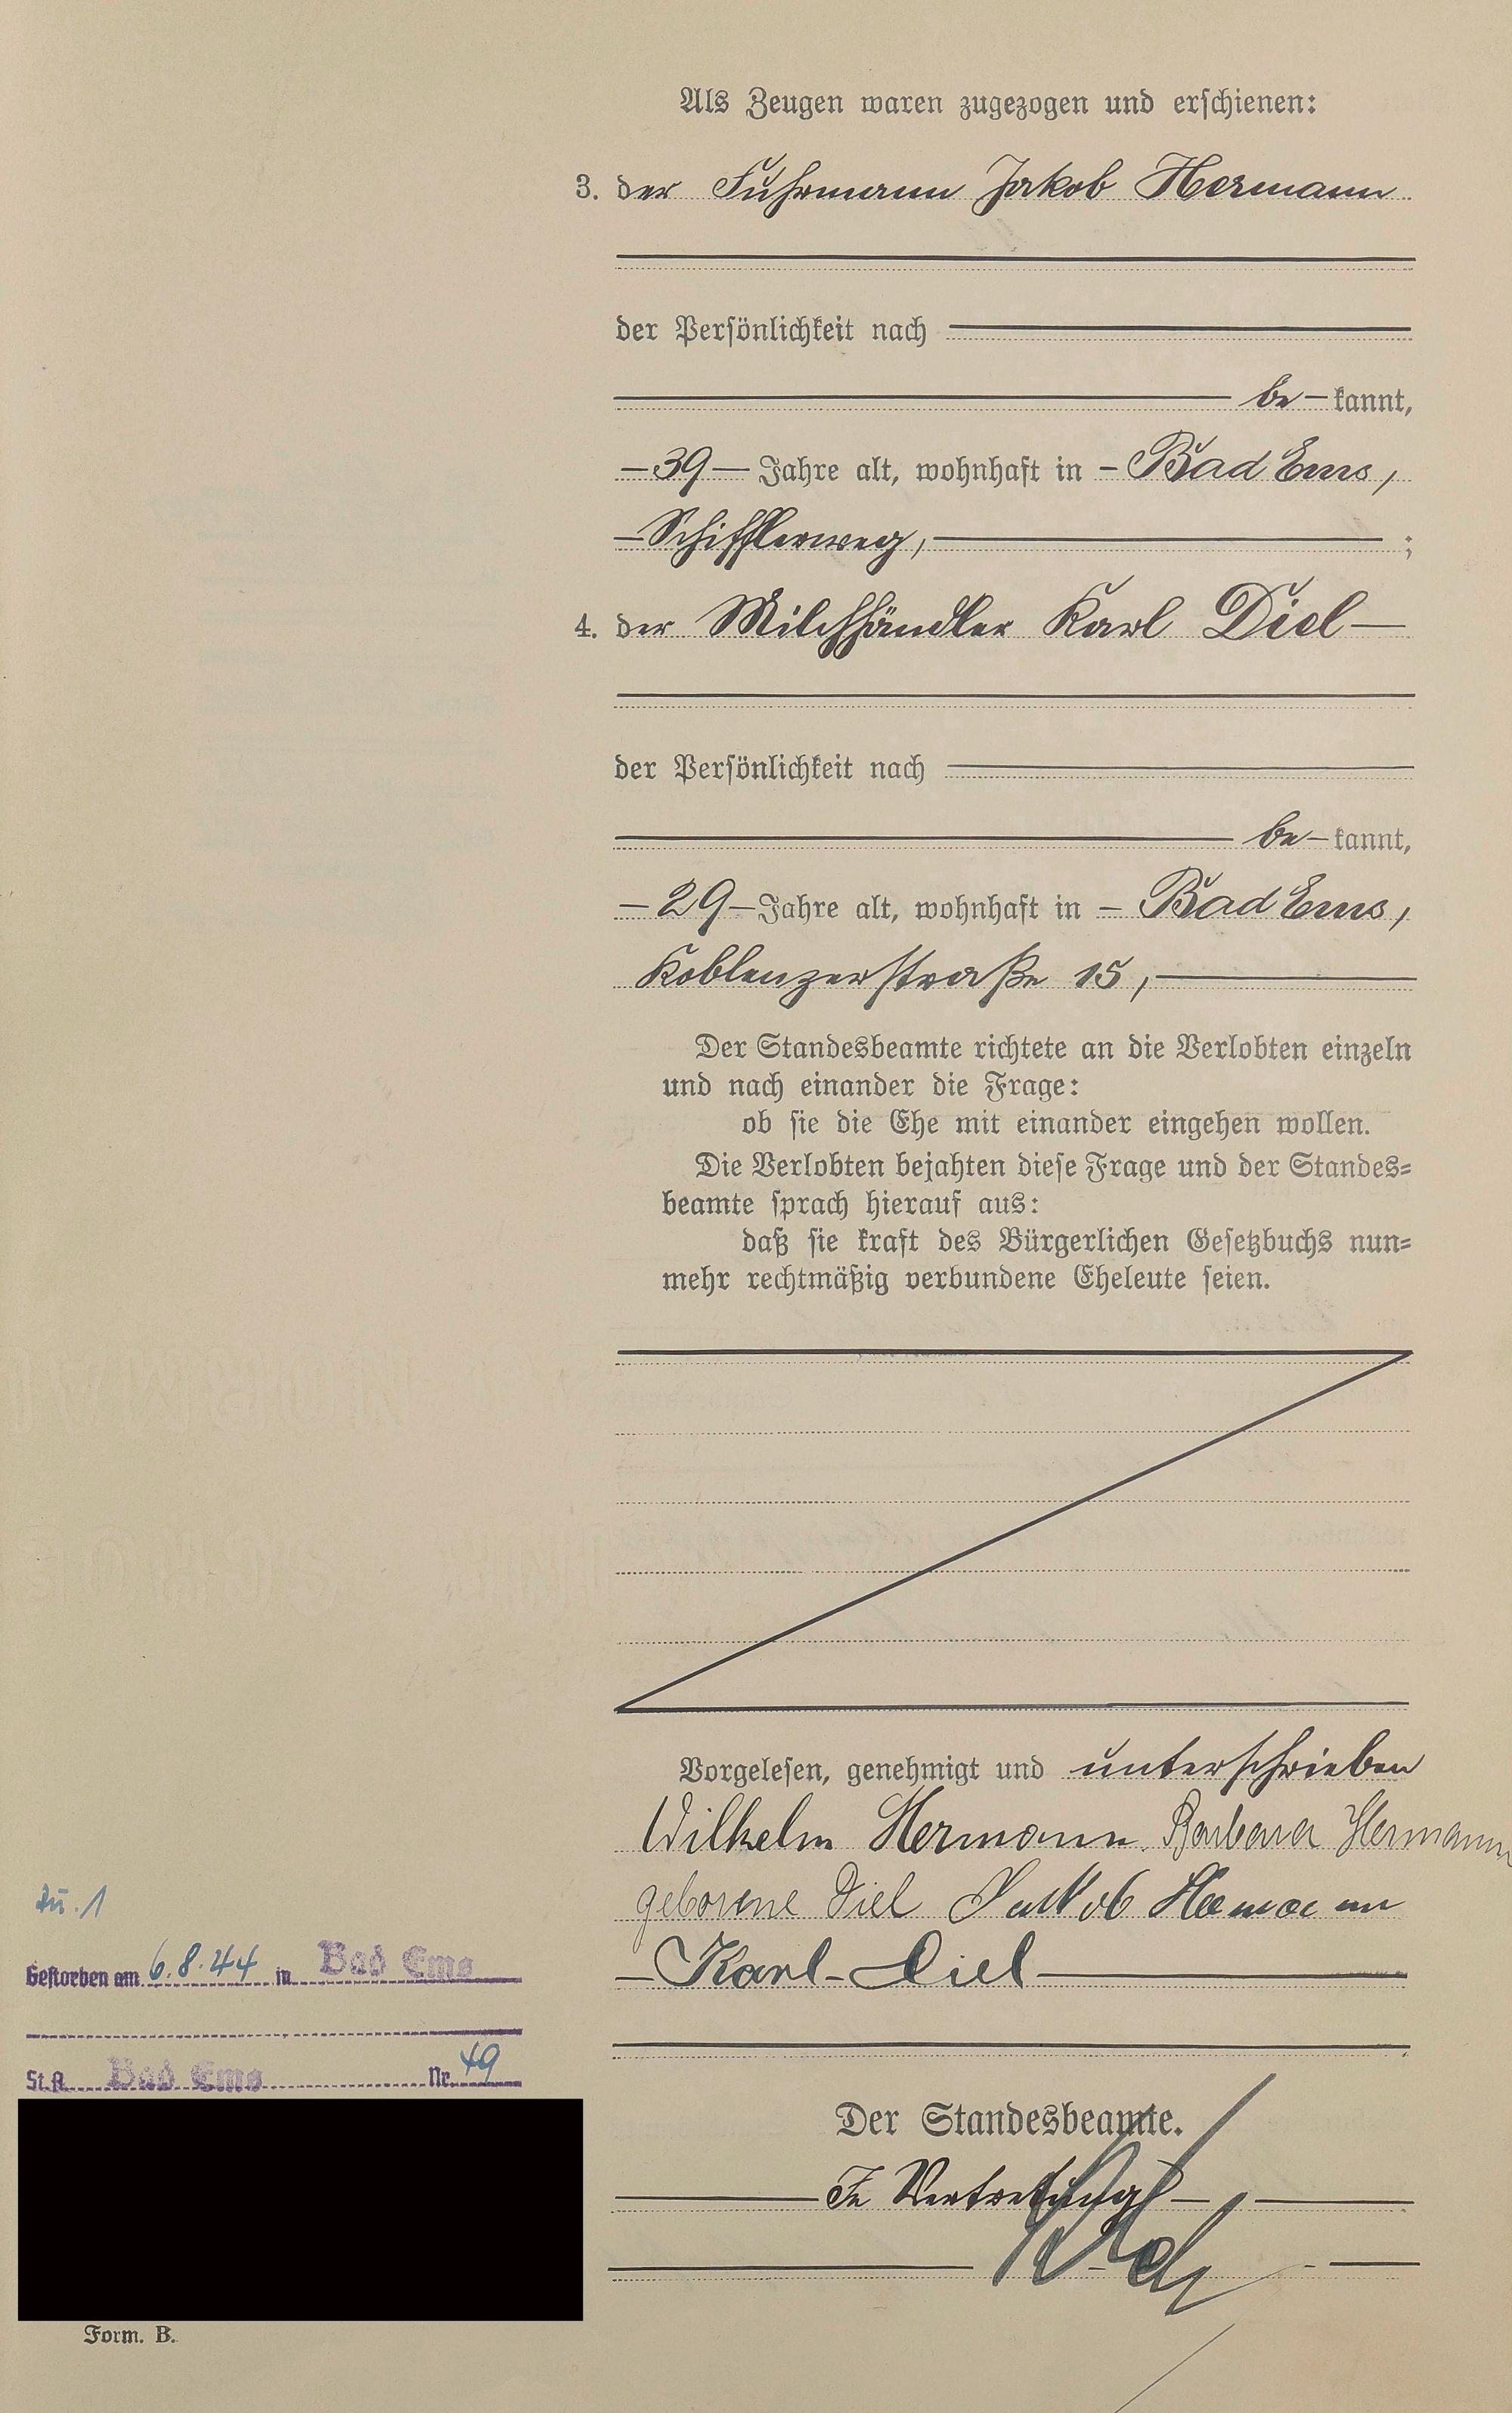 Als Zeugen waren zugezogen und erschienen:
3. der Fuhrmann Jakob Hermann
der Persönlichkeit nach
be- kannt,
- 39 - Jahre alt, wohnhaft in - Bad Ems,
- Schifflerweg, ;
4. der Milchhändler Karl Diel -
der Persönlichkeit nach
be- kannt,
- 29 - Jahre alt, wohnhaft in - Bad Ems,
Koblenzerstraße 15,
Der Standesbeamte richtete an die Verlobten einzeln
und nach einander die Frage:
ob sie die Ehe mit einander eingehen wollen.
Die Verlobten bejahten diese Frage und der Standes=
beamte sprach hierauf aus:
daß sie kraft des Bürgerlichen Gesetzbuchs nun=
mehr rechtmäßig verbundene Eheleute seien.
Vorgelesen, genehmigt und unterschrieben
Wilhelm Hermann. Barbara Hermann
geborene Diel Jakob Hermann
- Karl Diel -
Der Standesbeamte.
In Vertretung
Zu. 1
Gestorben am 6.8.44 in Bad Ems
St.A. Bad Ems Nr. 49
Form. B.